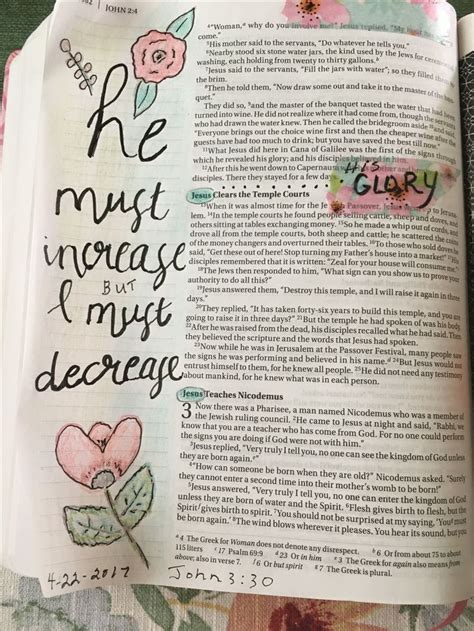 JOHN 2:4
he
must
increase
BUT
I must
decrease
4-22-2017
John 3:30
HIS
GLORY
4"Woman," why do you involve me?" Jesus replied. "My
come."
5His mother said to the servants, "Do whatever he tells you."
6Nearby stood six stone water jars, the kind used by the Jews for
washing, each holding from twenty to thirty gallons.b
7Jesus said to the servants, "Fill the jars with water"; so they filled
the brim.
8Then he told them, "Now draw some out and take it to the master of the
quet."
They did so, 9and the master of the banquet tasted the water that had
turned into wine. He did not realize where it had come from, though the
who had drawn the water knew. Then he called the bridegroom aside 10and
"Everyone brings out the choice wine first and then the cheaper wine after the
guests have had too much to drink; but you have saved the best till now."
11What Jesus did here in Cana of Galilee was the first of the signs through
which he revealed his glory; and his disciples believed in him.
12After this he went down to Capernaum
disciples. There they stayed for a few days.
Jesus Clears the Temple Courts
13When it was almost time for the Jewish Passover, Jesus
lem. 14In the temple courts he found people selling cattle, sheep and doves, and
others sitting at tables exchanging money. 15So he made a whip out of cords, and
drove all from the temple courts, both sheep and cattle; he scattered the coins
of the money changers and overturned their tables. 16To those who sold doves he
said, "Get these out of here! Stop turning my Father's house into a market!" 17His
disciples remembered that it is written: "Zeal for your house will consume me."
18The Jews then responded to him, "What sign can you show us to prove your
authority to do all this?"
19Jesus answered them, "Destroy this temple, and I will raise it again in three
days."
20They replied, "It has taken forty-six years to build this temple, and you are
going to raise it in three days?" 21But the temple he had spoken of was his body.
22After he was raised from the dead, his disciples recalled what he had said. Then
they believed the scripture and the words that Jesus had spoken.
23Now while he was in Jerusalem at the Passover Festival, many people saw
the signs he was performing and believed in his name.d 24But Jesus would not
entrust himself to them, for he knew all people. 25He did not need any testimony
about mankind, for he knew what was in each person.
Jesus Teaches Nicodemus
3 Now there was a Pharisee, a man named Nicodemus who was a member of
the Jewish ruling council. 2He came to Jesus at night and said, "Rabbi, we
know that you are a teacher who has come from God. For no one could perform
the signs you are doing if God were not with him."
3Jesus replied, "Very truly I tell you, no one can see the kingdom of God unless
they are born again.e"
4"How can someone be born when they are old?" Nicodemus asked. "Surely
they cannot enter a second time into their mother's womb to be born!"
5Jesus answered, "Very truly I tell you, no one can enter the kingdom of God
unless they are born of water and the Spirit. 6Flesh gives birth to flesh, but the
Spirit gives birth to spirit. 7You should not be surprised at my saying, 'You must
be born again.' 8The wind blows wherever it pleases. You hear its sound, but you
a 4 The Greek for Woman does not denote any disrespect. b 6 Or from about 75 to about
115 liters c 17 Psalm 69:9 d 23 Or in him e 3 The Greek for again also means from
above; also in verse 7. f 6 Or but spirit g 7 The Greek is plural.